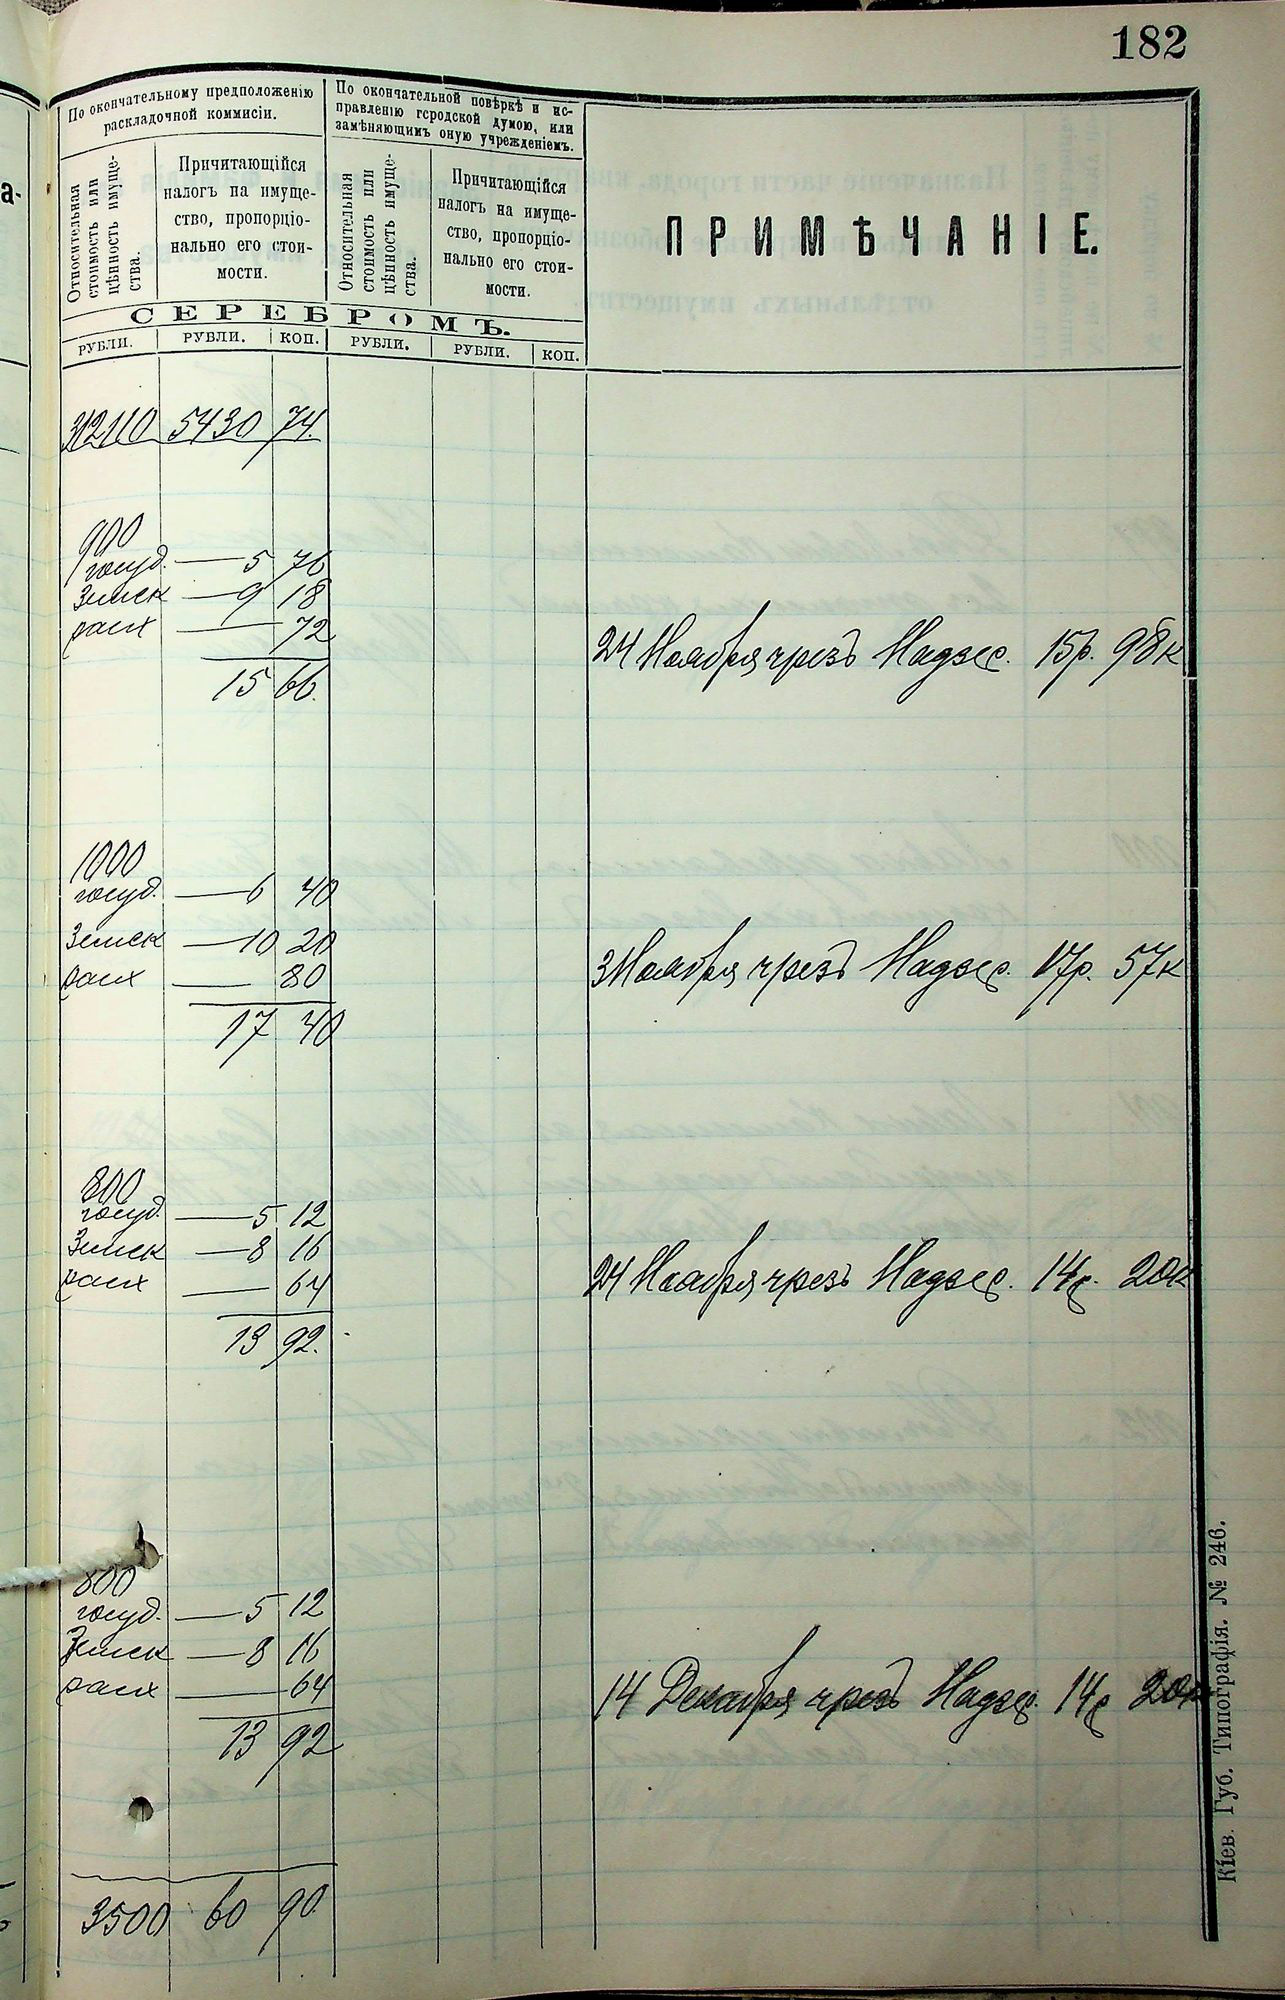 182
По окончательному предположенію
раскладочной коммисіи.
По окончательной повѣркѣ и ис-
правленію городской думою, или
замѣняющимъ оную учрежденіемъ.
Относительная
стоимость или
цѣнность имуще-
ства.
Причитающійся
налогъ на имуще-
ство, пропорціо-
нально его стои-
мости.
Относительная
стоимость или
цѣнность имуще-
ства.
Причитающійся
налогъ на имуще-
ство, пропорціо-
нально его стои-
мости.
ПРИМѢЧАНІЕ.
СЕРЕБРОМЪ.
РУБЛИ. РУБЛИ. КОП. РУБЛИ. РУБЛИ. КОП.
312110 5430 74.
900
госуд. — 5 76
Земск — 9 18
расх — 72
15 66.
24 Ноября чрезъ Надзер. 15р. 98к
1000
госуд. — 6 40
Земск — 10 20
расх — 80
17 40
3 Ноября чрезъ Надзер. 17р. 57к
800
госуд. — 5 12
Земск — 8 16
расх — 64
13 92.
24 Ноября чрезъ Надзер. 14р. 20к
800
госуд. — 5 12
Земск — 8 16
расх — 64
13 92
14 Декабря чрезъ Надзер. 14р 20к
3500 60 90.
Кіев. Губ. Типографія. № 246.